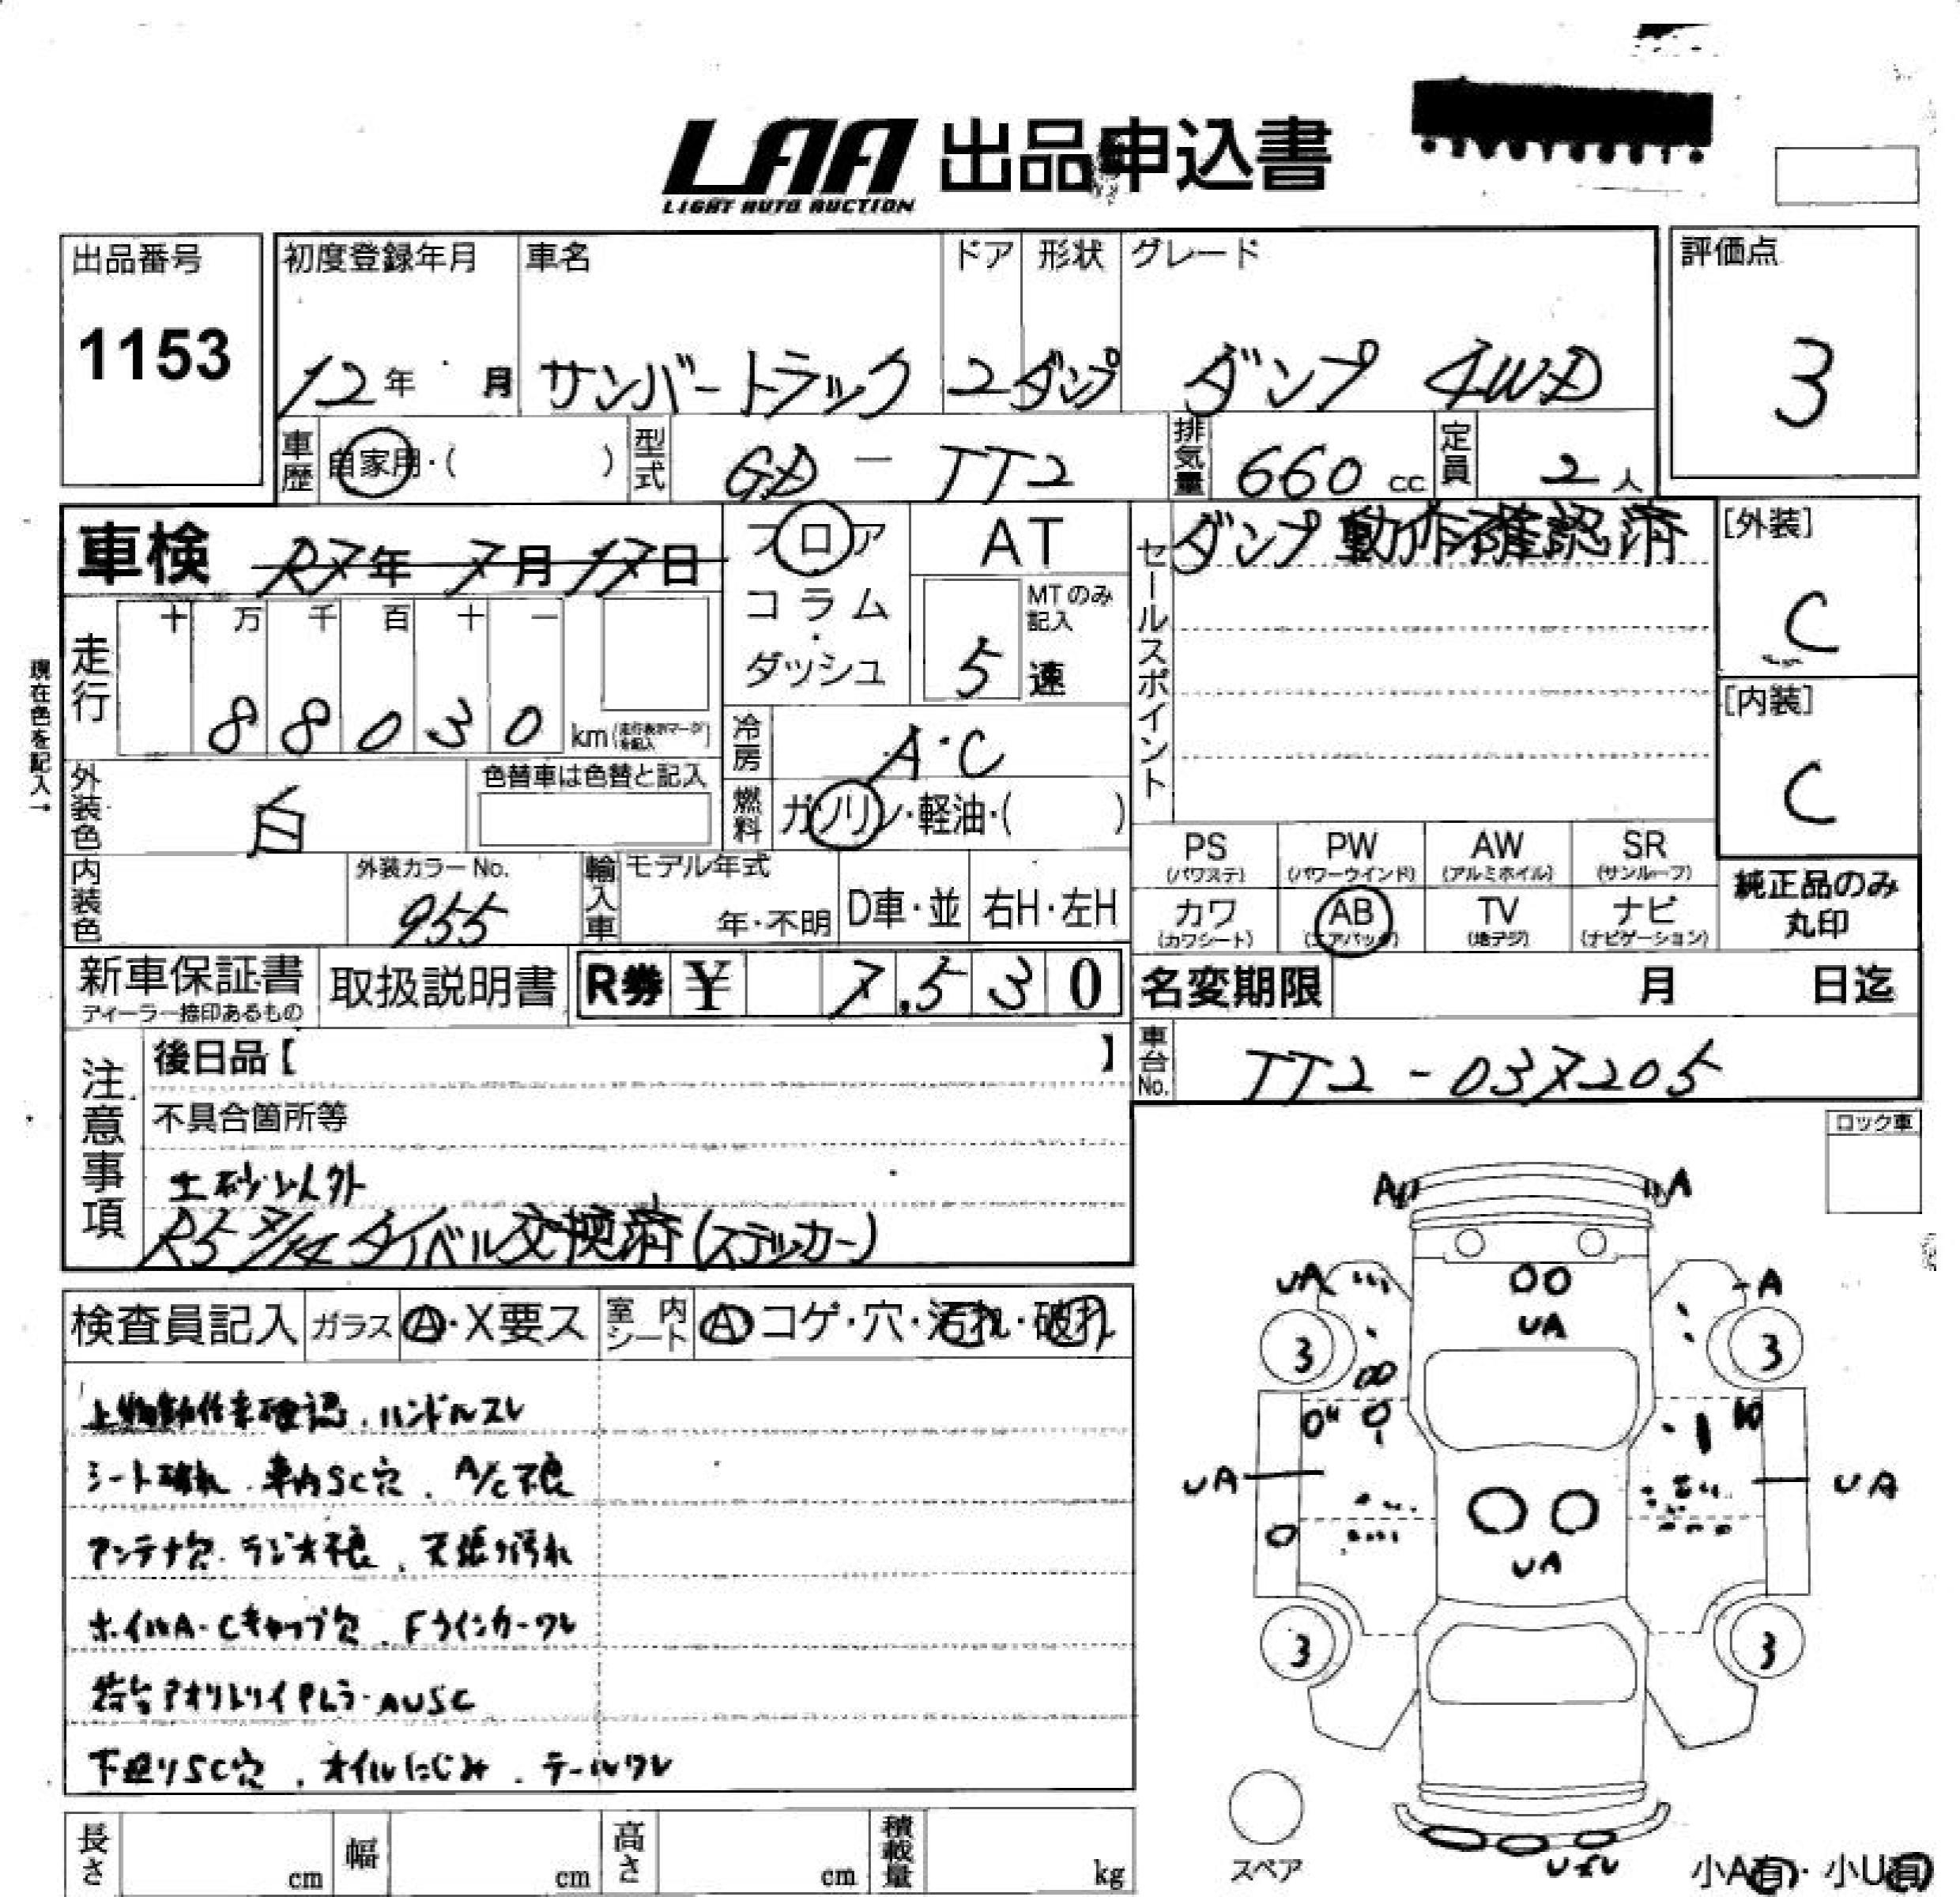 LAA 出品申込書
LIGHT AUTO AUCTION
出品番号
1153
初度登録年月
12年 月
車名
サンバートラック
ドア
2
形状
ダンプ
グレード
ダンプ 4WD
評価点
3
車歴
自家用・( )
型式
GD - TT2
排気量
660 cc
定員
2人
車検 R7年 7月 17日
フロア
コラム
・
ダッシュ
AT
MTのみ
記入
5 速
セールスポイント
ダンプ動作確認済
[外装]
C
[内装]
C
現在色を記入→
走行
十 万 千 百 十 一
8 8 0 3 0
km
外装色
白
色替車は色替と記入
冷房
A・C
燃料
ガソリン・軽油・( )
内装色
外装カラーNo.
955
輸入車
モデル年式
年・不明
D車・並
右H・左H
PS
(パワステ)
PW
(パワーウインド)
AW
(アルミホイル)
SR
(サンルーフ)
カワ
(カワシート)
AB
(エアバッグ)
TV
(地デジ)
ナビ
(ナビゲーション)
純正品のみ
丸印
新車保証書
ディーラー捺印あるもの
取扱説明書
R券 ¥ 7,530
名変期限 月 日迄
車台No.
TT2-037205
注意事項
後日品【 】
不具合箇所等
土砂以外
R5 7/14 タイベル交換済(ステッカー)
ロック車
検査員記入
ガラス
A・X要ス
室内
シート
A コゲ・穴・汚れ・破れ
上物動作未確認、ハンドルスレ
シート破れ、車内SC穴、A/C不良
アンテナ欠、ラジオ不良、天張り汚れ
ホイルA・Cキャップ欠、Fウインカーワレ
荷台アオリトリイPLラ・AUSC
下廻りSC穴、オイルにじみ、テールワレ
A
A
UA
UA
A
3
3
UA
UA
UA
3
3
スペア
小A有・小U有
長さ
cm
幅
cm
高さ
cm
積載量
kg